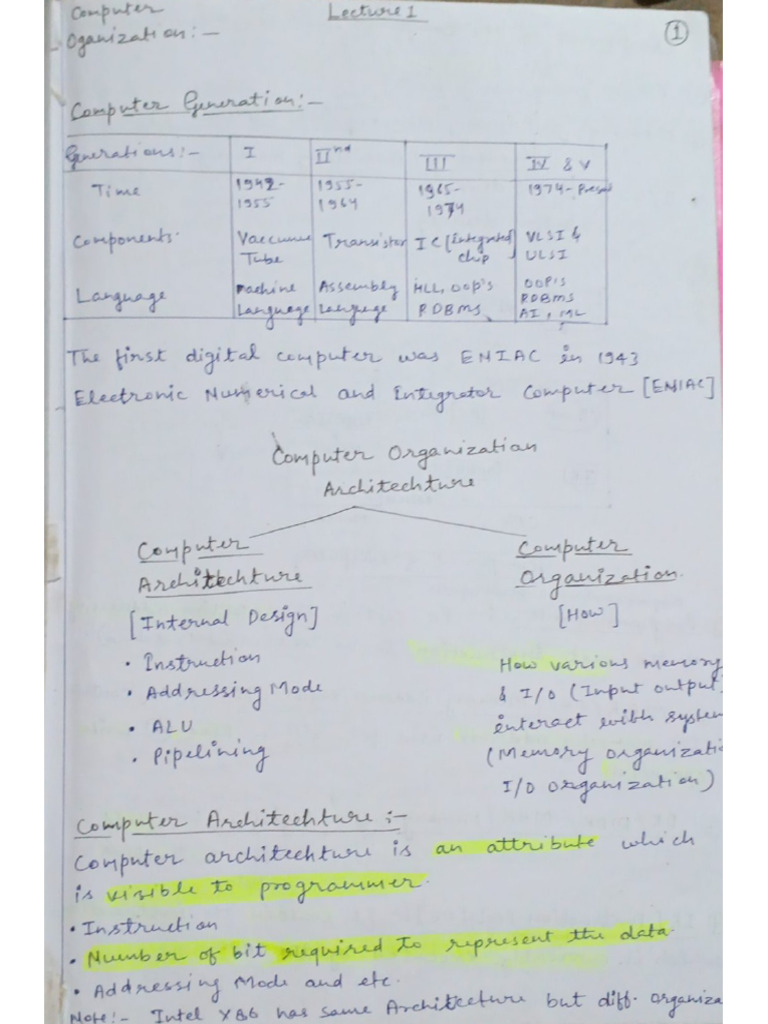 Computer
Oganization:-
Lecture 1
1
Computer Generation:-
Generations:- I IInd III IV & V
Time 1942-1955 1955-1964 1965-1974 1974-Present
Components. Vaccume Tube Transistor IC [integrated chip] VLSI & ULSI
Language Machine Language Assembly Language HLL, OOP's RDBMS OOP'S RDBMS AI, ML
The first digital computer was ENIAC in 1943
Electronic Numerical and Integrator Computer [ENIAC]
Computer Organization
Architechture
Computer
Architechture
[Internal Design]
• Instruction
• Addressing Mode
• ALU
• Pipelining
Computer
Organization.
[How]
How various memory
& I/O (Input output)
interact with system
(Memory organizatio
I/O organization)
Computer Architechture :-
Computer architechture is an attribute which
is visible to programmer.
• Instruction
• Number of bit required to represent the data.
• Addressing Mode and etc.
Note:- Intel X86 has same Architecture but diff. organiza